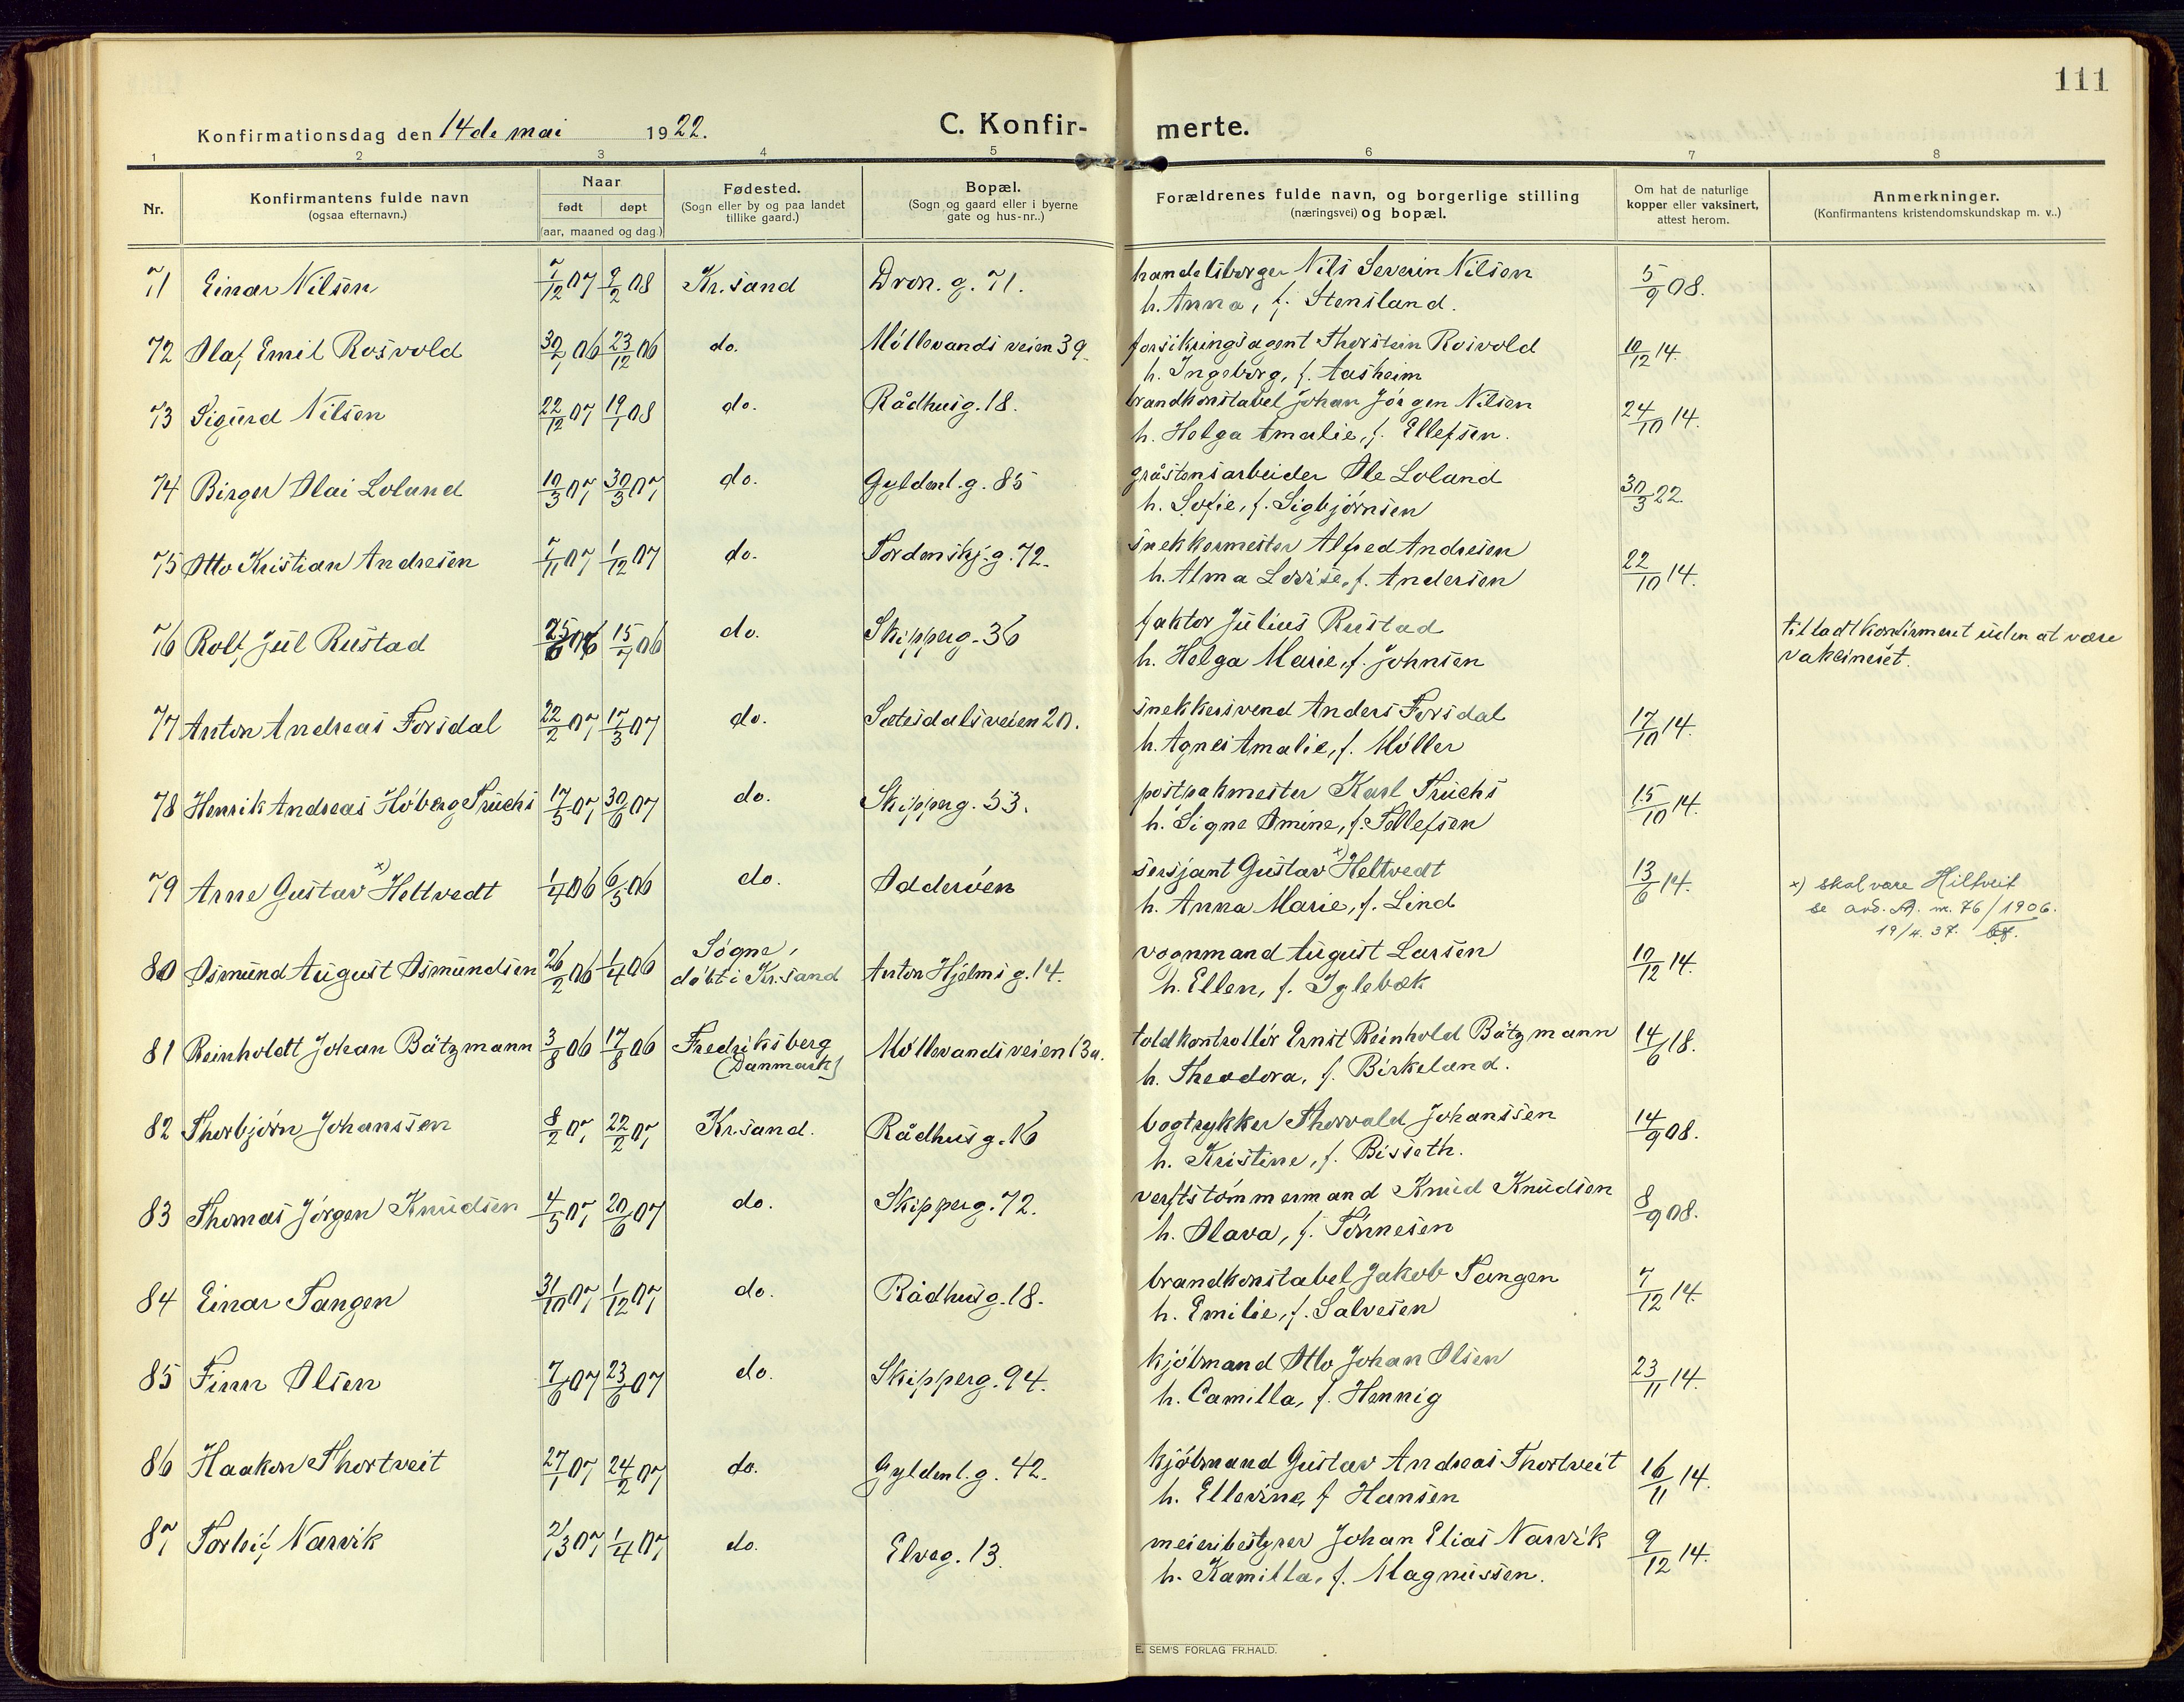 111
Konfirmationsdag den 14de mai 1922. C. Konfir- merte.
1 2 3 4 5 6 7 8
Nr.
Konfirmantens fulde navn
(ogsaa efternavn.)
Naar
født døpt
(aar, maaned og dag.)
Fødested.
(Sogn eller by og paa landet
tillike gaard.)
Bopæl.
(Sogn og gaard eller i byerne
gate og hus-nr..)
Forældrenes fulde navn, og borgerlige stilling
(næringsvei) og bopæl.
Om hat de naturlige
kopper eller vaksinert,
attest herom.
Anmerkninger.
(Konfirmantens kristendomskundskap m. v..)
71 Einar Nilsen 7/12 07 9/2 08 Kr.sand Dron. g. 71. handelsborger Nils Severin Nilsen 5/9 08.
h. Anna, f. Stensland.
72 Olaf Emil Rosvold 30/1 06 23/12 06 do. Møllevandsveien 39. forsikringsagent Thorstein Rosvold 10/12 14.
h. Ingeborg, f. Aasheim
73 Sigurd Nilsen 22/12 07 19/1 08 do. Rådhusg. 18. brandkonstabel Johan Jørgen Nilsen 24/10 14.
h. Helga Amalie, f. Ellefsen.
74 Birger Olai Loland 10/3 07 30/3 07 do. Gyldenl. g. 85 gråstensarbeider Ole Loland 30/3 22.
h. Sofie, f. Sigbjørnsen
75 Otto Kristian Andresen 7/11 07 1/12 07 do. Tordenskj. g. 72. snekkermester Alfred Andresen 22/10 14.
h. Alma Lovise, f. Andersen
76 Rolf Jul Rustad 25/6 06 15/7 06 do. Skipperg. 36 faktor Julius Rustad tilladt konfirmeret uden at være
h. Helga Marie, f. Johnsen vakcineret.
77 Anton Andreas Forsdal 22/2 07 17/3 07 do. Sætesdalsveien 20. snekkersvend Anders Forsdal 17/10 14.
h. Agnes Amalie, f. Møller
78 Henrik Andreas Høberg Fuchs 17/5 07 30/6 07 do. Skipperg. 53. postpakmester Karl Fuchs 15/10 14.
h. Signe Omine, f. Tellefsen
79 Arne Gustav x) Heltvedt 1/4 06 6/5 06 do. Odderøen sersjant Gustav x) Heltvedt 13/6 14. x) skal være Hiltveit
h. Anna Marie, f. Lind se avd. A. nr. 76/1906.
19/4. 37.
80 Osmund August Osmundsen 26/2 06 1/4 06 Søgne, døbt i Kr.sand Anton Hjelms g. 14. vognmand August Larsen 10/12 14.
h. Ellen, f. Iglebæk
81 Reinholdt Johan Bätzmann 3/8 06 17/8 06 Fredriksberg (Danmark) Møllevandsveien 13a. toldkontrollør Ernst Reinhold Bätzmann 14/6 18.
h. Theodora, f. Birkeland.
82 Thorbjørn Johanssen 8/2 07 22/2 07 Kr.sand. Rådhusg. 16 bogtrykker Thorvald Johanssen 14/9 08.
h. Kristine, f. Bisseth.
83 Thomas Jørgen Knudsen 4/5 07 20/6 07 do. Skipperg. 72. verftstømmermand Knud Knudsen 8/9 08.
h. Olava, f. Tønnesen
84 Einar Tangen 31/10 07 1/12 07 do. Rådhusg. 18. brandkonstabel Jakob Tangen 7/12 14.
h. Emilie, f. Salvesen
85 Finn Olsen 7/6 07 23/6 07 do. Skipperg. 94. kjøbmand Otto Johan Olsen 23/11 14.
h. Camilla, f. Hennig
86 Haakon Thortveit 27/1 07 24/2 07 do. Gyldenl. g. 42. kjøbmand Gustav Andreas Thortveit 16/11 14.
h. Ellevine, f. Hansen
87 Torleif Narvik 2/3 07 1/4 07 do. Elveg. 13. meieribestyrer Johan Elias Narvik 9/12 14.
h. Kamilla, f. Magnussen.
E. SEM'S FORLAG FR.HALD.